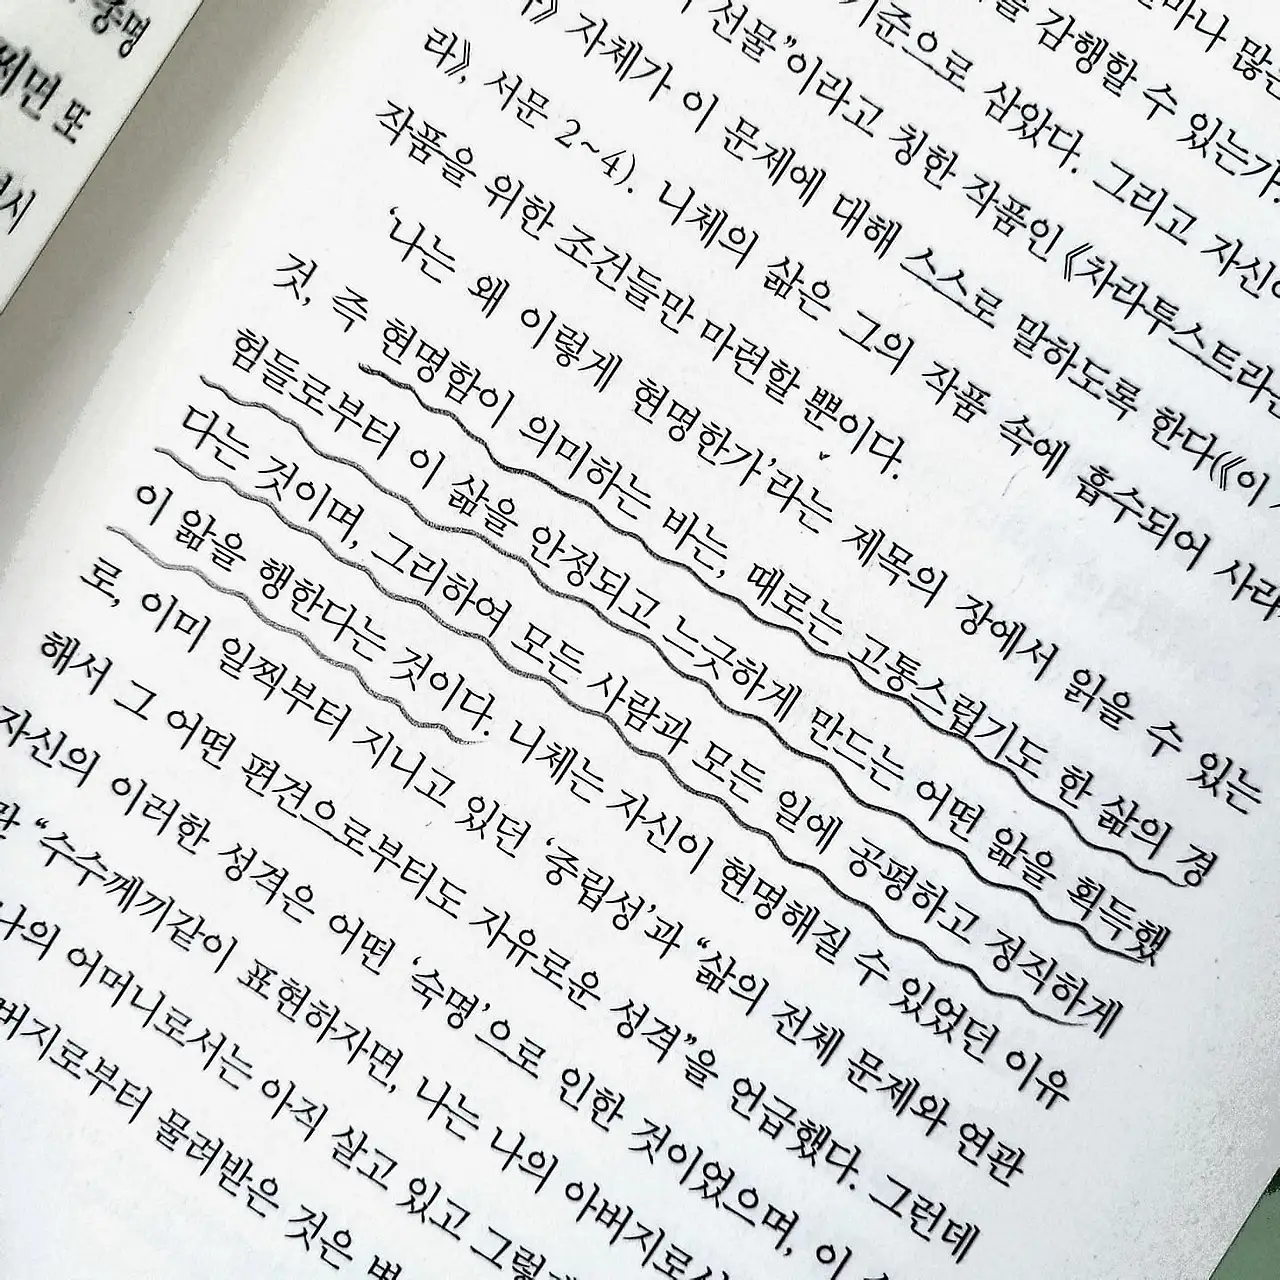 중명
찌면 또
시
얼마나 많은
을 감행할 수 있는가.
기준으로 삼았다. 그리고 자신이
선물”이라고 칭한 작품인 《차라투스트라는
》 자체가 이 문제에 대해 스스로 말하도록 한다(《이 사
라》, 서문 2~4). 니체의 삶은 그의 작품 속에 흡수되어 사라
작품을 위한 조건들만 마련할 뿐이다.
‘나는 왜 이렇게 현명한가’라는 제목의 장에서 읽을 수 있는
것, 즉 현명함이 의미하는 바는, 때로는 고통스럽기도 한 삶의 경
험들로부터 이 삶을 안정되고 느긋하게 만드는 어떤 앎을 획득했
다는 것이며, 그리하여 모든 사람과 모든 일에 공평하고 정직하게
이 앎을 행한다는 것이다. 니체는 자신이 현명해질 수 있었던 이유
로, 이미 일찍부터 지니고 있던 ‘중립성’과 “삶의 전체 문제와 연관
해서 그 어떤 편견으로부터도 자유로운 성격”을 언급했다. 그런데
자신의 이러한 성격은 어떤 ‘숙명’으로 인한 것이었으며, 이
“수수께끼같이 표현하자면, 나는 나의 아버지로서
나의 어머니로서는 아직 살고 있고 그렇게
버지로부터 물려받은 것은